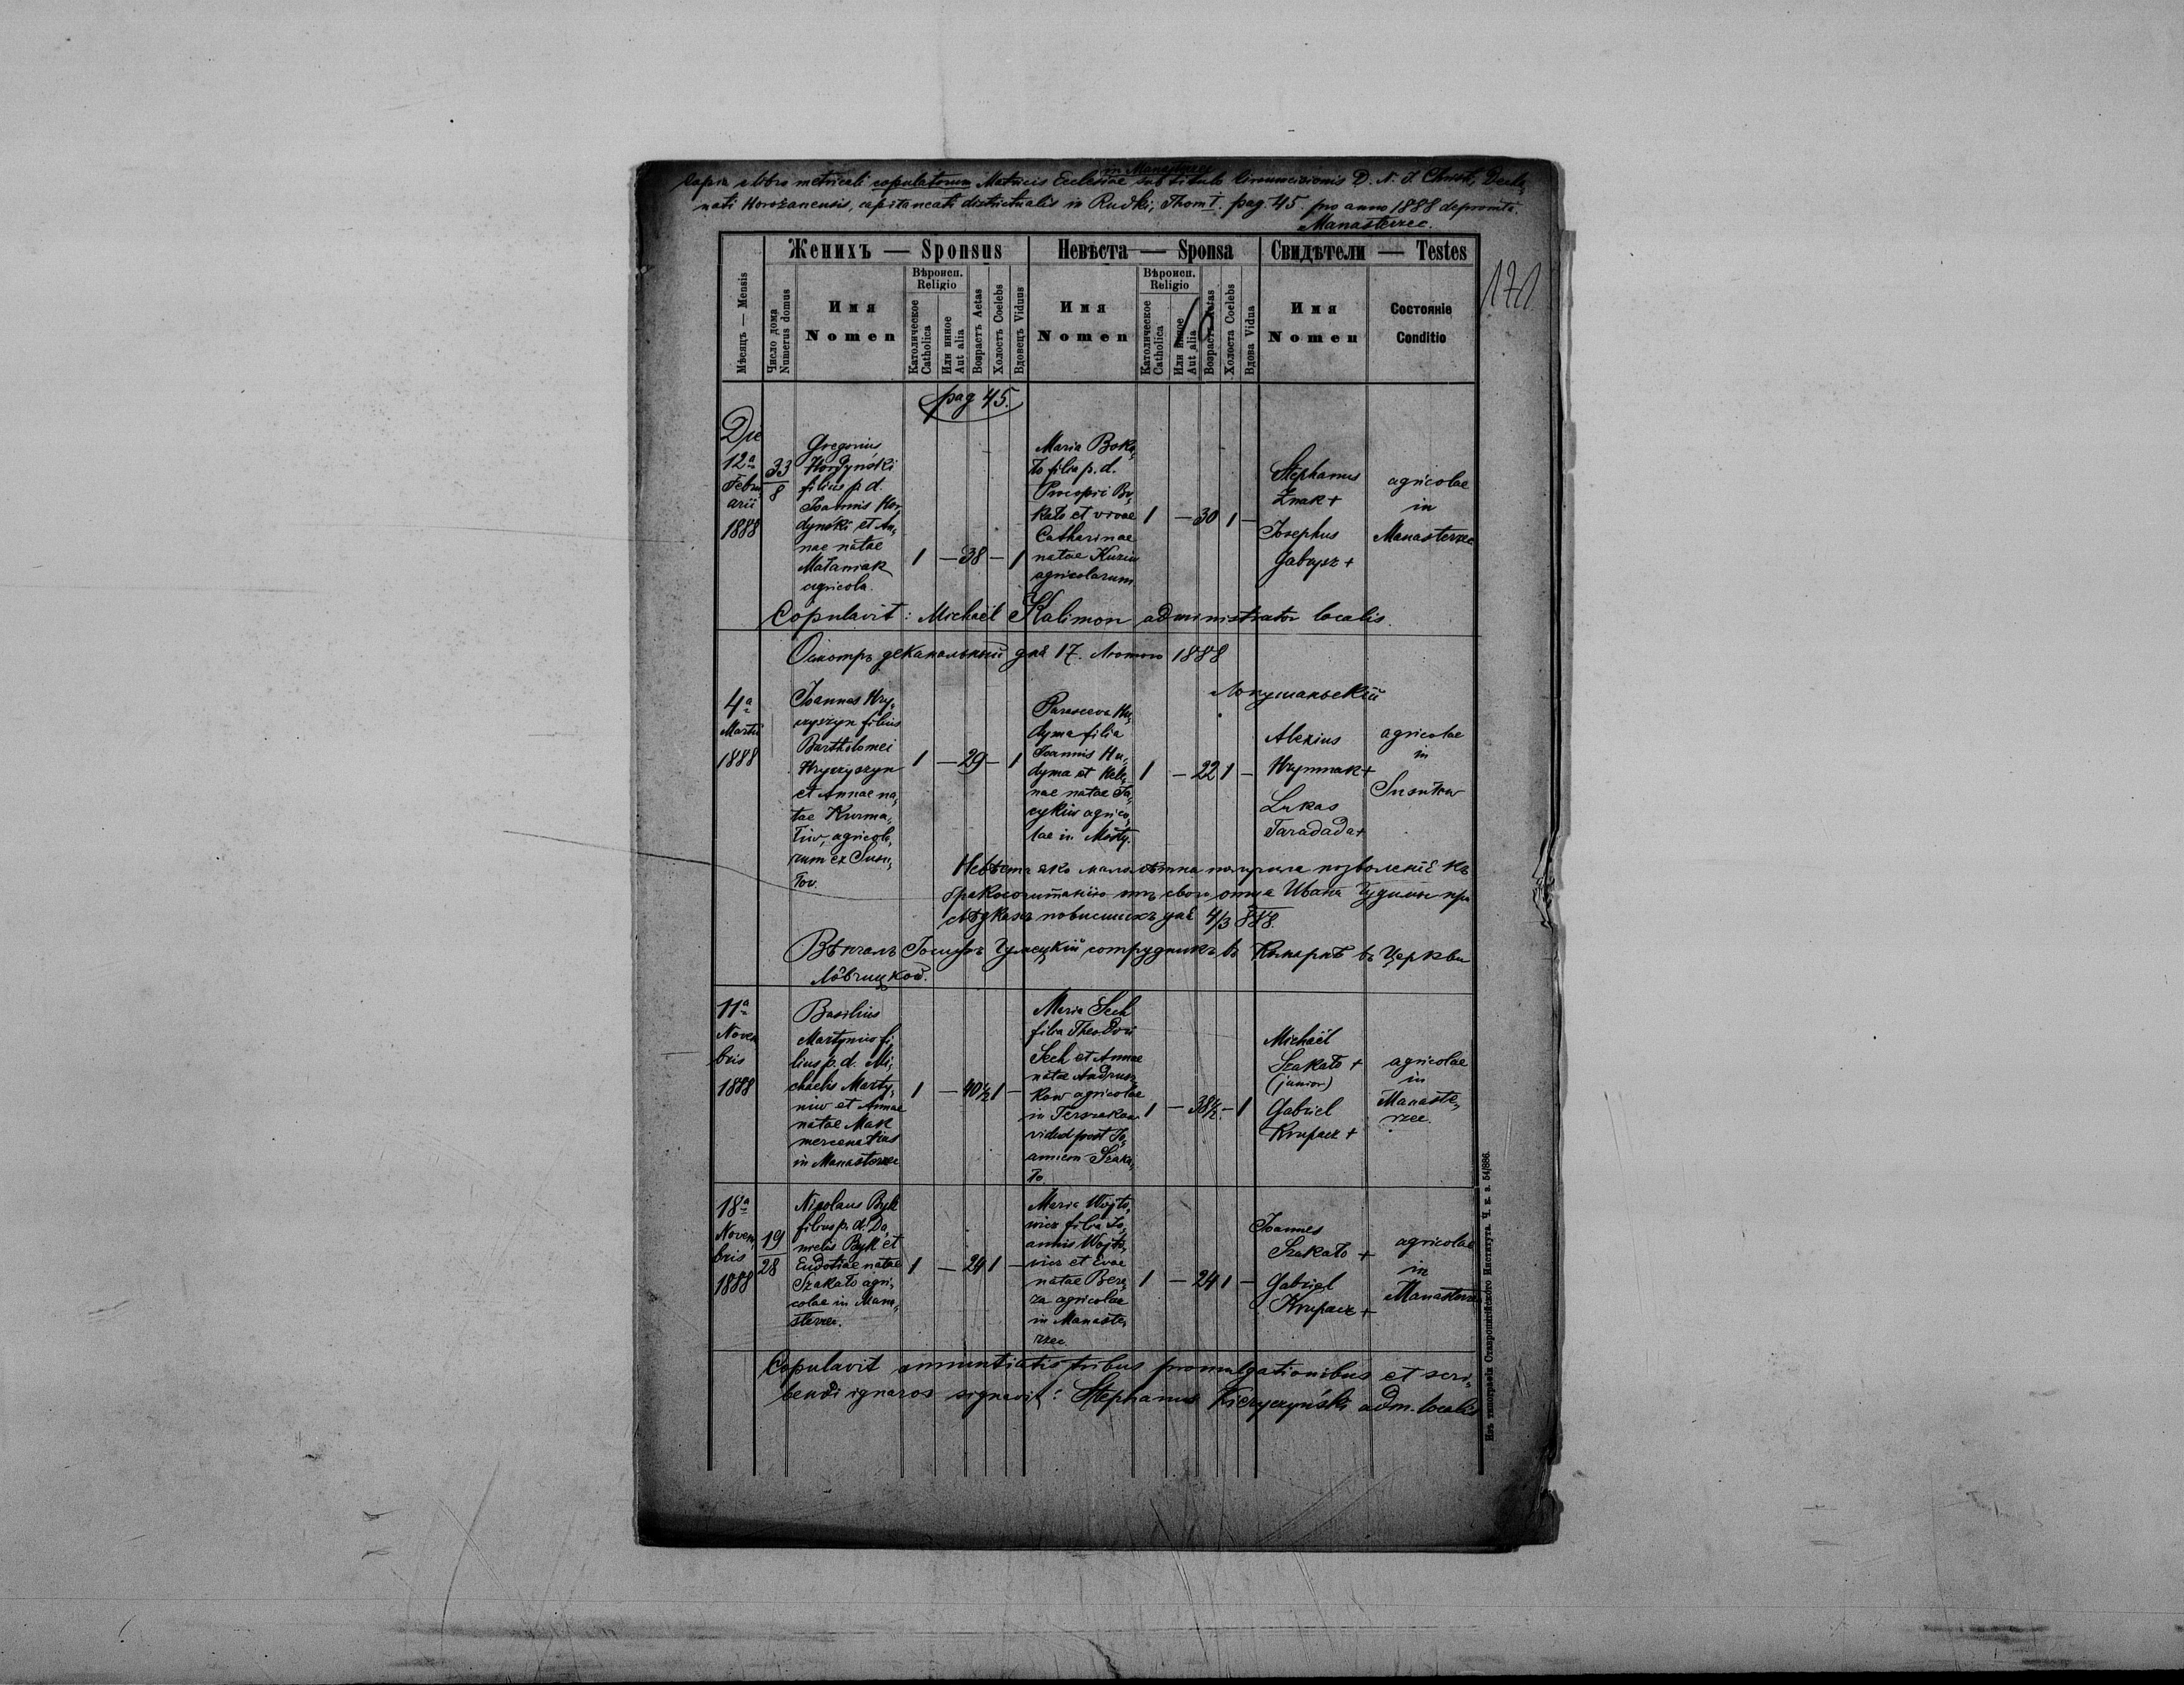 in Manasterzec
Copia e libro metricali copulatorum Matricis Ecclesiae sub titulo Circumcisionis D. N. J. Christi, Deca-
nati Horožanensis, capitaneati districtualis in Rudki, Thom I. pag. 45. pro anno 1888 depromta.
Manasterzec.
171
Женихъ — Sponsus
Невѣста — Sponsa
Свидѣтели — Testes
Мѣсяцъ — Mensis
Число дома
Numerus domus
Имя
Nomen
Вѣроисп.
Religio
Католическое
Catholica
Или инное
Aut alia
Возрастъ Aetas
Холостъ Coelebs
Вдовецъ Viduus
Имя
Nomen
Вѣроисп.
Religio
Католическое
Catholica
Или инное
Aut alia
Возрастъ Aetas
Холоста Coelebs
Вдова Vidua
Имя
Nomen
Состояніе
Conditio
pag 45.
Die
12a
Febru
arii
1888
33
8
Gregorius
Hordyński
filius p. d.
Joannis Hor,
dyński et An,
nae natae
Mataniak
agricola.
1 — 38 — 1
Maria Boka,
to filia p. d.
Procopii Bo,
kato et vivae
Catharinae
natae Kuziw
agricolarum
1 — 30 1 —
Stephanus
Żnak +
Josephus
Gabrysz +
agricolae
in
Manasterzec
Copulavit: Michaël Kalimon administrator localis.
деканальный дня 17. Лютого 1888
4a
Martii
1888
Joannes Hry,
czyszyn filius
Bartholomei
Hryczyszyn
et Annae na,
tae Kurma,
tiw, agricola,
rum ex Susu,
tov.
1 — 29 — 1
Parasceva Hu,
dyma filia
Joannis Hu,
dyma et Hele,
nae natae Ja,
cykiw agrico,
lae in Mosty.
1 — 22 1 —
Alexius
Hrymnak +
Lukas
Taradada +
agricolae
in
Susułow
Невѣста яко малолѣтна получила позволеніе къ
бракосочитанію отъ свого отца Ивана Гудимы при
свѣдкахъ повысшихъ дня 4/3 888.
Вѣнчалъ Іосифъ сотрудникъ в Комарнѣ въ Церкви
11a
Novem
bris
1888
Basilius
Martyniw fi,
lius p. d. Mi,
chaelis Marty,
niw et Annae
natae Mak
mercenarius
in Manasterzec
1 — 40 1/2 1 —
Maria Sech
filia Theodori
Sech et Annae
natae Andrusz,
kow agricolae
in Terszakow
vidua post Jo,
annem Szaka,
to.
1 — 38 1/2 — 1
Michaël
Szakato +
(junior)
Gabriel
Krupacz +
agricolae
in
Manaste,
rzec.
18a
Novem,
bris
1888
19
28
Nicolaus Byk
filius p. d. Da,
nielis Byk et
Eudotiae natae
Szakato agri,
colae in Mana,
sterzec.
1 — 24 1 —
Maria Wojto,
wicz filia Jo,
annis Wojto,
wicz et Evae
natae Bere,
za agricolae
in Manaste,
rzec.
1 — 24 1 —
Joannes
Szakato +
Gabriel
Krupacz +
agricolae
in
Manasterzec
Copulavit annuntiatis tribus promulgationibus et scri,
bendi ignaros signavit: Stephanus Kiczyczyński adm. localis
Изъ типографіи Ставропигійского Института. Ч. к. а. 54/886.